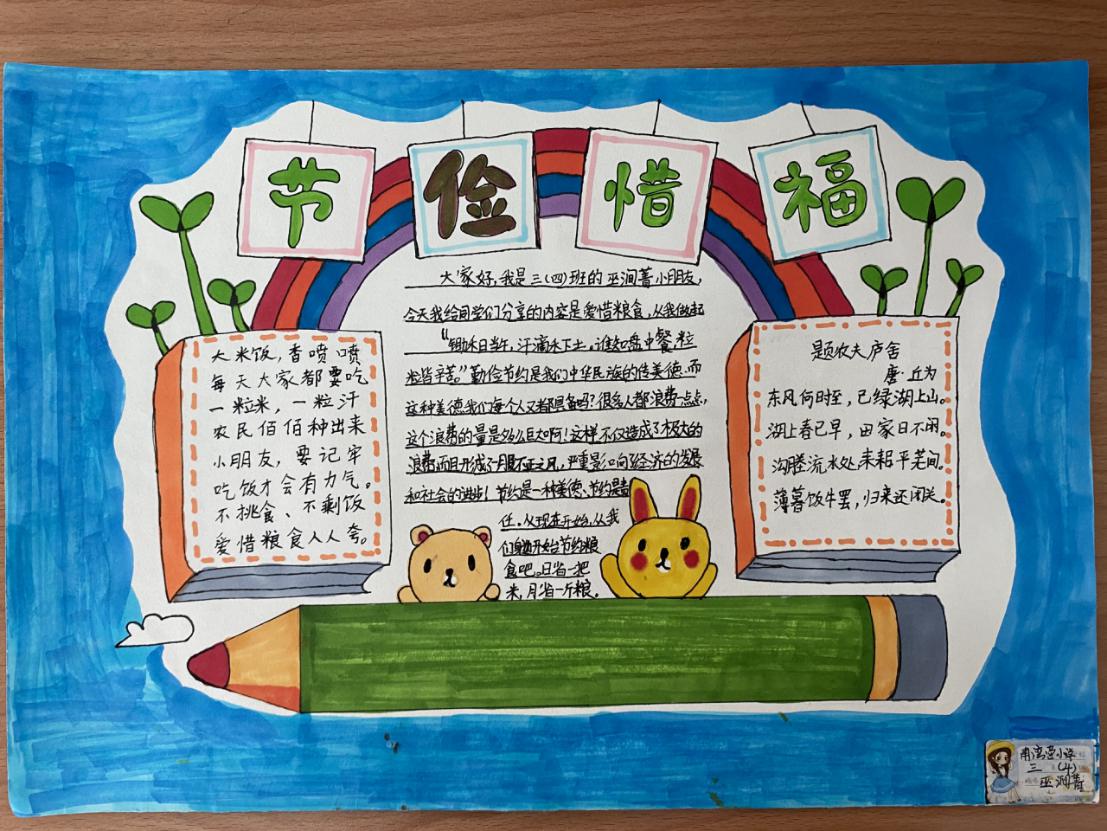 节俭惜福
大家好,我是三(四)班的巫涧菁小朋友,
今天我给同学们分享的内容是爱惜粮食,从我做起
“锄禾日当午,汗滴禾下土,谁知盘中餐,粒
粒皆辛苦。”勤俭节约是我们中华民族的传美德,而
这种美德我们每个人又都具备吗?很多人都浪费一点点,
这个浪费的量是多么巨大啊!这样不仅造成了极大的
浪费而且形成了不正之风,严重影响经济的发展
和社会的进步!节约是一种美德、节约是责
任。从现在开始,从我
们身边开始节约粮
食吧。日省一把
米,月省一斤粮。
大米饭,香喷喷
每天大家都要吃
一粒米,一粒汗
农民佰佰种出来
小朋友,要记牢
吃饭才会有力气。
不挑食、不剩饭
爱惜粮食人人夸。
题农夫庐舍
唐·丘为
东风何时至,已绿湖上山。
湖上春已早,田家日不闲。
沟塍流水处,耒耜平芜间。
薄暮饭牛罢,归来还闭关。
小学
三(4)
巫涧菁